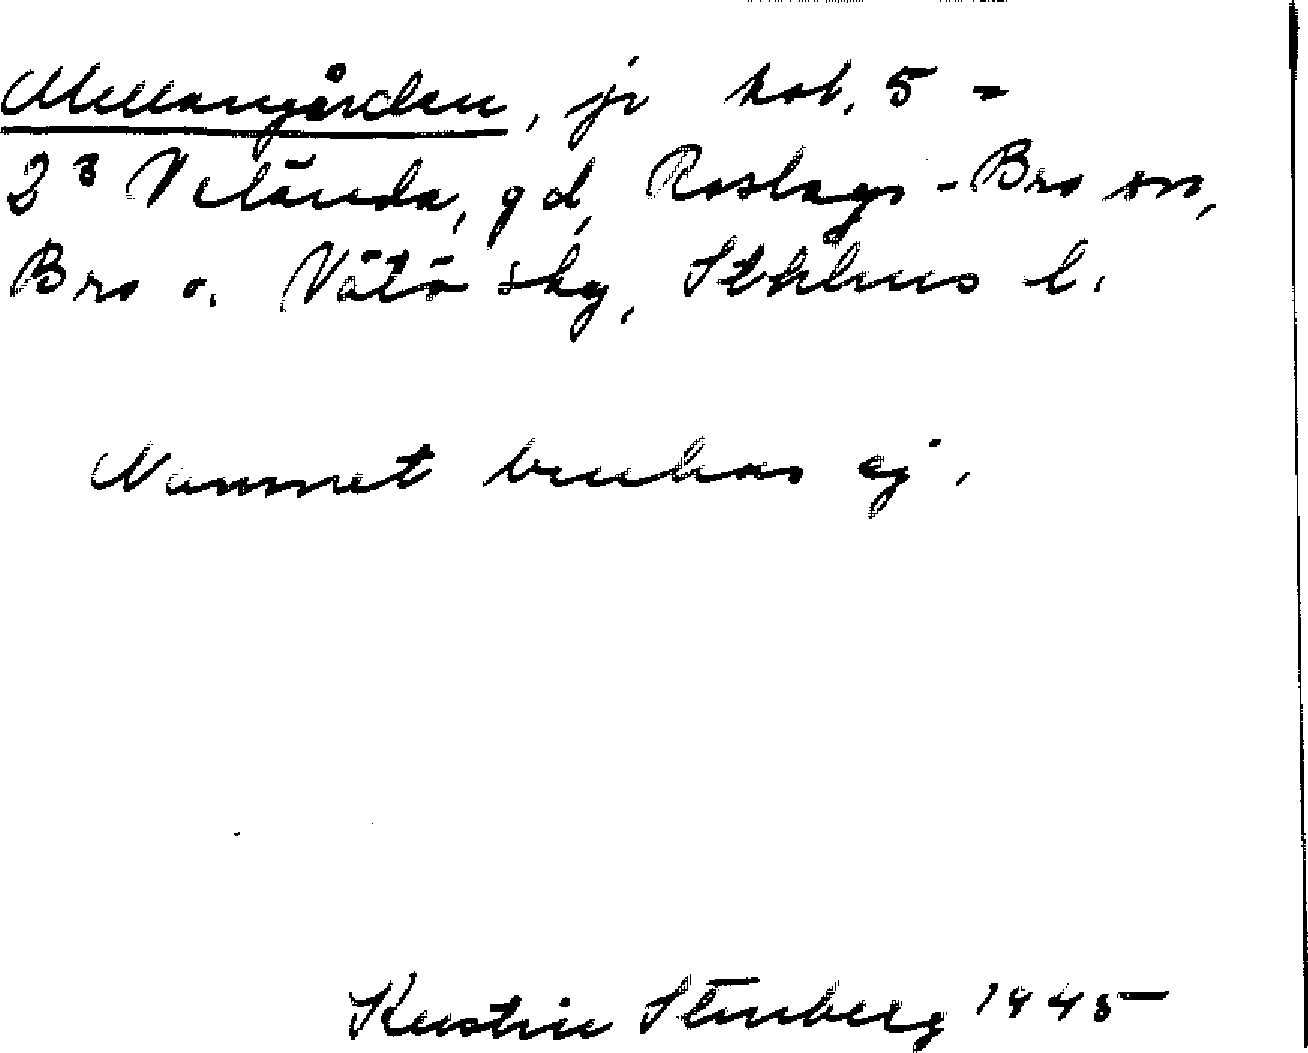 Mellangården, jr kob. 5 =
2³ Veländа, gd, Roslags-Bro sn,
Bro o. Vätö skg, Sthlms l.
Namnet brukas ej.
Kerstin Stenberg 1945